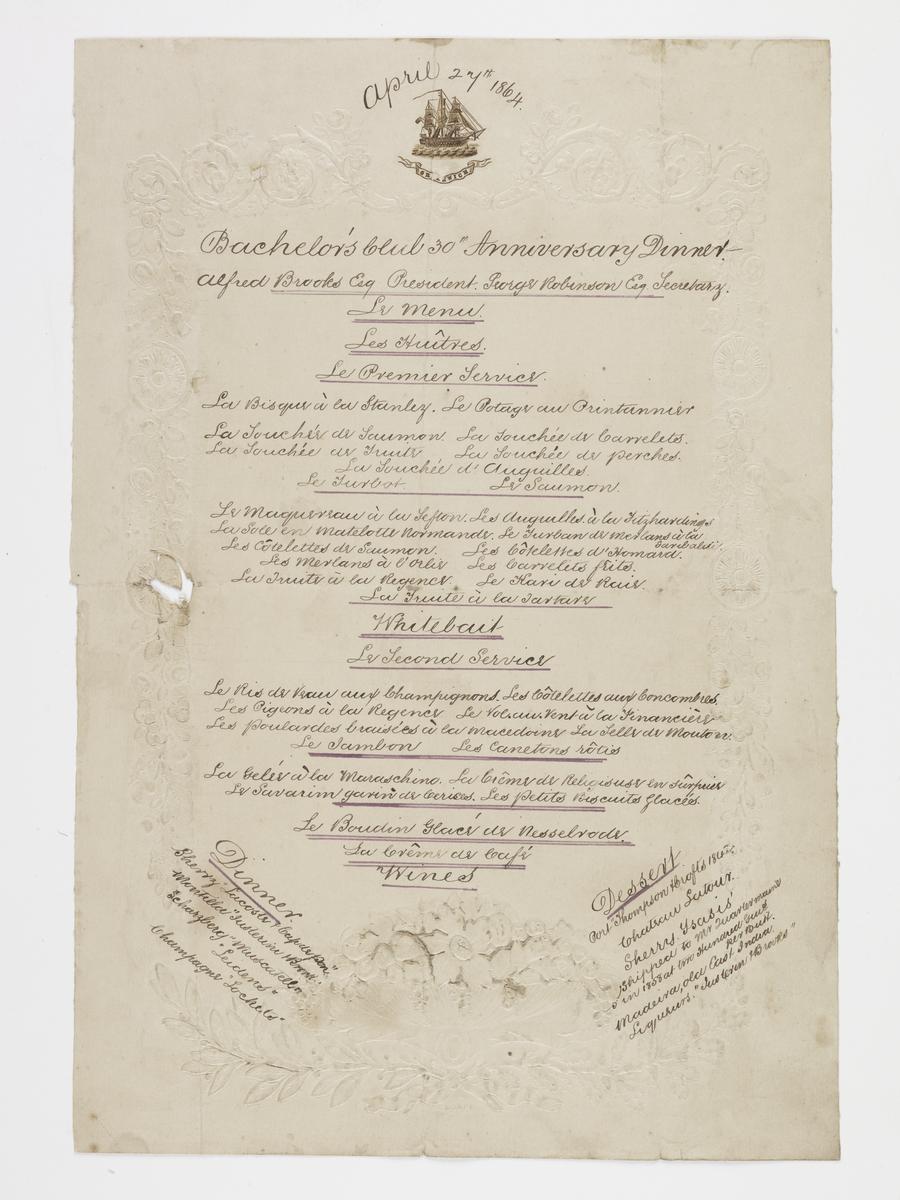 April 27th 1864.
Bachelor's Club 30" Anniversary Dinner.
Alfred Brooks Esq President. George Robinson Esq. Secretary.
Le Menu.
Les Huîtres.
Le Premier Service.
La Bisque à la Stanley. Le Potage au Printannier
La Souchée de Saumon. La Souchée de Carrelets.
La Souchée de Truite La Souchée de perches.
La Souchée d'Anguilles.
Le Turbot. Le Saumon.
Le Maquereau à la Sefton. Les Anguilles à la Fitzhardinge
La Sole en Matelotte Normande. Le Turban de Merlans à la Garibaldi.
Les Côtelettes de Saumon. Les Côtelettes d'Homard.
Les Merlans à l'Orlie Les Carrelets frits.
La Truite à la Regence. Le Kari de Raie.
La Truite à la Tartare
Whitebait
Le Second Service
Le Ris de Veau aux Champignons. Les Côtelettes aux Concombres.
Les Pigeons à la Regence Le Vol.au.Vent à la Financière
Les Poulardes braisées à la Macedoine La Selle de Mouton.
Le Jambon Les Canetons rôtis
La Gelée à la Maraschino. La Crême de Religieuse en Surprise
Le Savarin garin de Cerises. Les Petits Biscuits Glacés.
Le Boudin Glacé de Nesselrode.
La Crême de Café
Wines
Dinner.
Sherry "Lacoste & Capdepon"
Montilla "Justerini & Brooks"
Scharzberg "Muscatelle
"Leidens"
Champagne
Dessert
Port "Thompson & Crofts
Chateau Latour.
Sherry "Ysasis"
Shipped to Mr Quartermaine
in 1858 at two Hundred Gns
per Butt.
Madeira, old East India.
Liqueurs. "Justerini & Brooks"